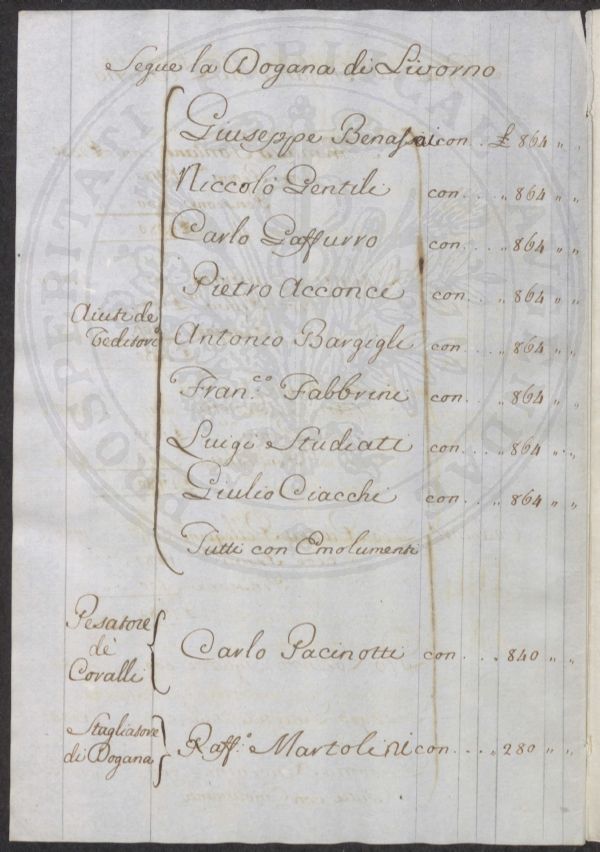 Segue la Dogana di Livorno
Giuseppe Benassai con . £ 864 " "
Niccolò Gentili con . . . " 864 " "
Carlo Gaffurro con . . . " 864 " "
Pietro Acconci con . . . " 864 " "
Aiuti de
Antonio Bargigli con . . . " 864 " "
Fran.co Fabbrini con . . . " 864 " "
Luigi Studiati con . . . " 864 " "
Giulio Ciacchi con . . . " 864 " "
Tutti con Emolumenti
Pesatore
de'
Coralli
Carlo Pacinotti con . . . " 840 " "
Stagliatore
di Dogana
Raff.o Martolini con . . . " 280 " "
PROSPERITATI